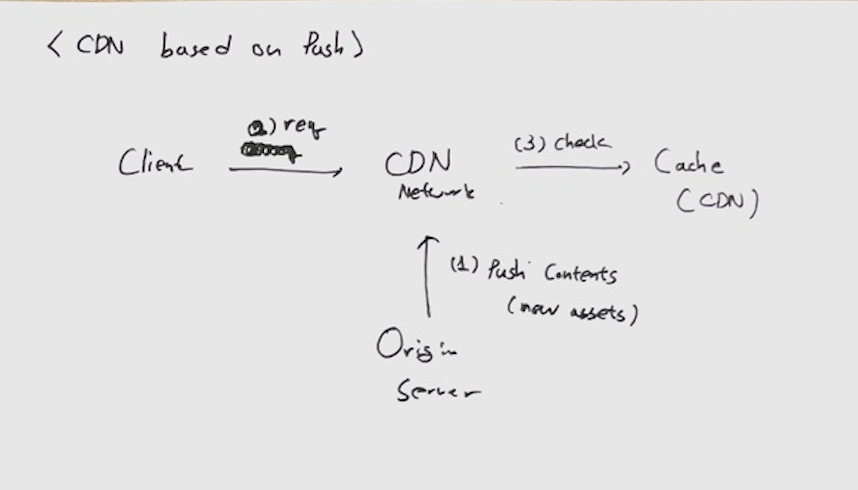 < CDN based on Push >
2) req
Client
CDN
Network
(3) check
Cache
(CDN)
(1) Push Contents
(new assets)
Origin
Server